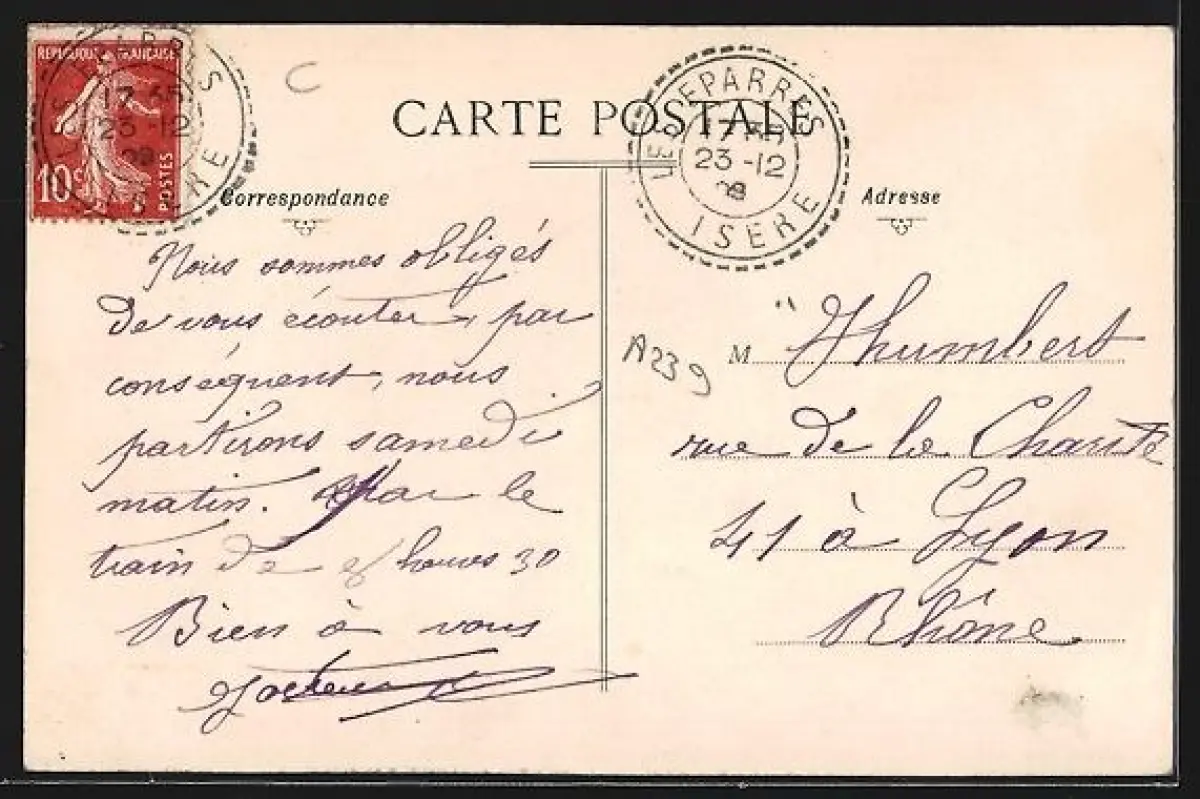 REPUBLIQUE FRANÇAISE
10c POSTES
17 35
23 -12
09
ISERE
C
CARTE POSTALE
LES EPARRES
17 35
23 -12
ISERE
Correspondance
Adresse
Nous sommes obligés
de vous écouter, par
conséquent, nous
partirons samedi
matin. Par le
train de 8 heures 30
Bien à vous
A239
M " Jhumbert
rue de la Charité
41 à Lyon
Rhône